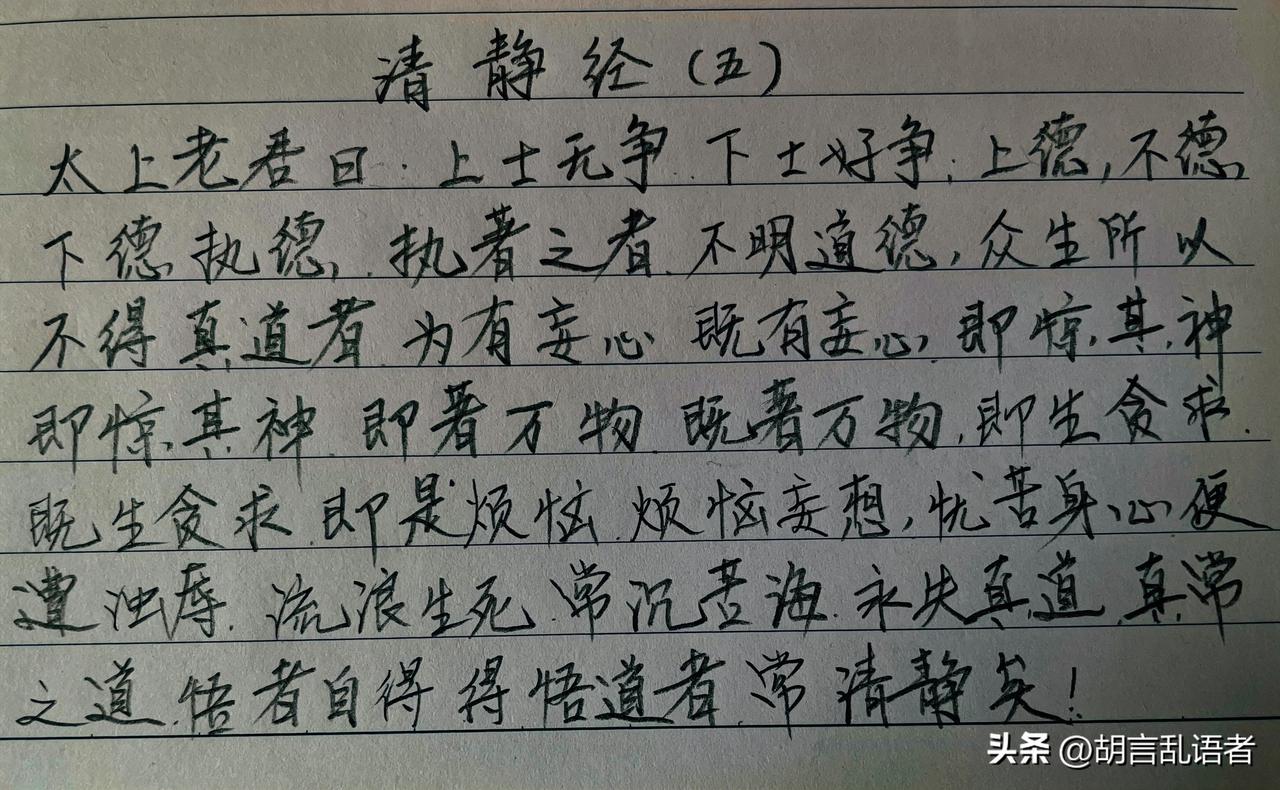 清静经(五)
太上老君曰.上士无争.下士好争,上德,不德,
下德执德,.执著之者.不明道德,众生所以
不得真道者.为有妄心 既有妄心,即惊其神
即惊其神.即著万物.既著万物,即生贪求.
既生贪求.即是烦恼.烦恼妄想,忧苦身心便
遭浊辱.流浪生死.常沉苦海.永失真道.真常
之道.悟者自得 得悟道者.常清静矣!
头条 @胡言乱语者